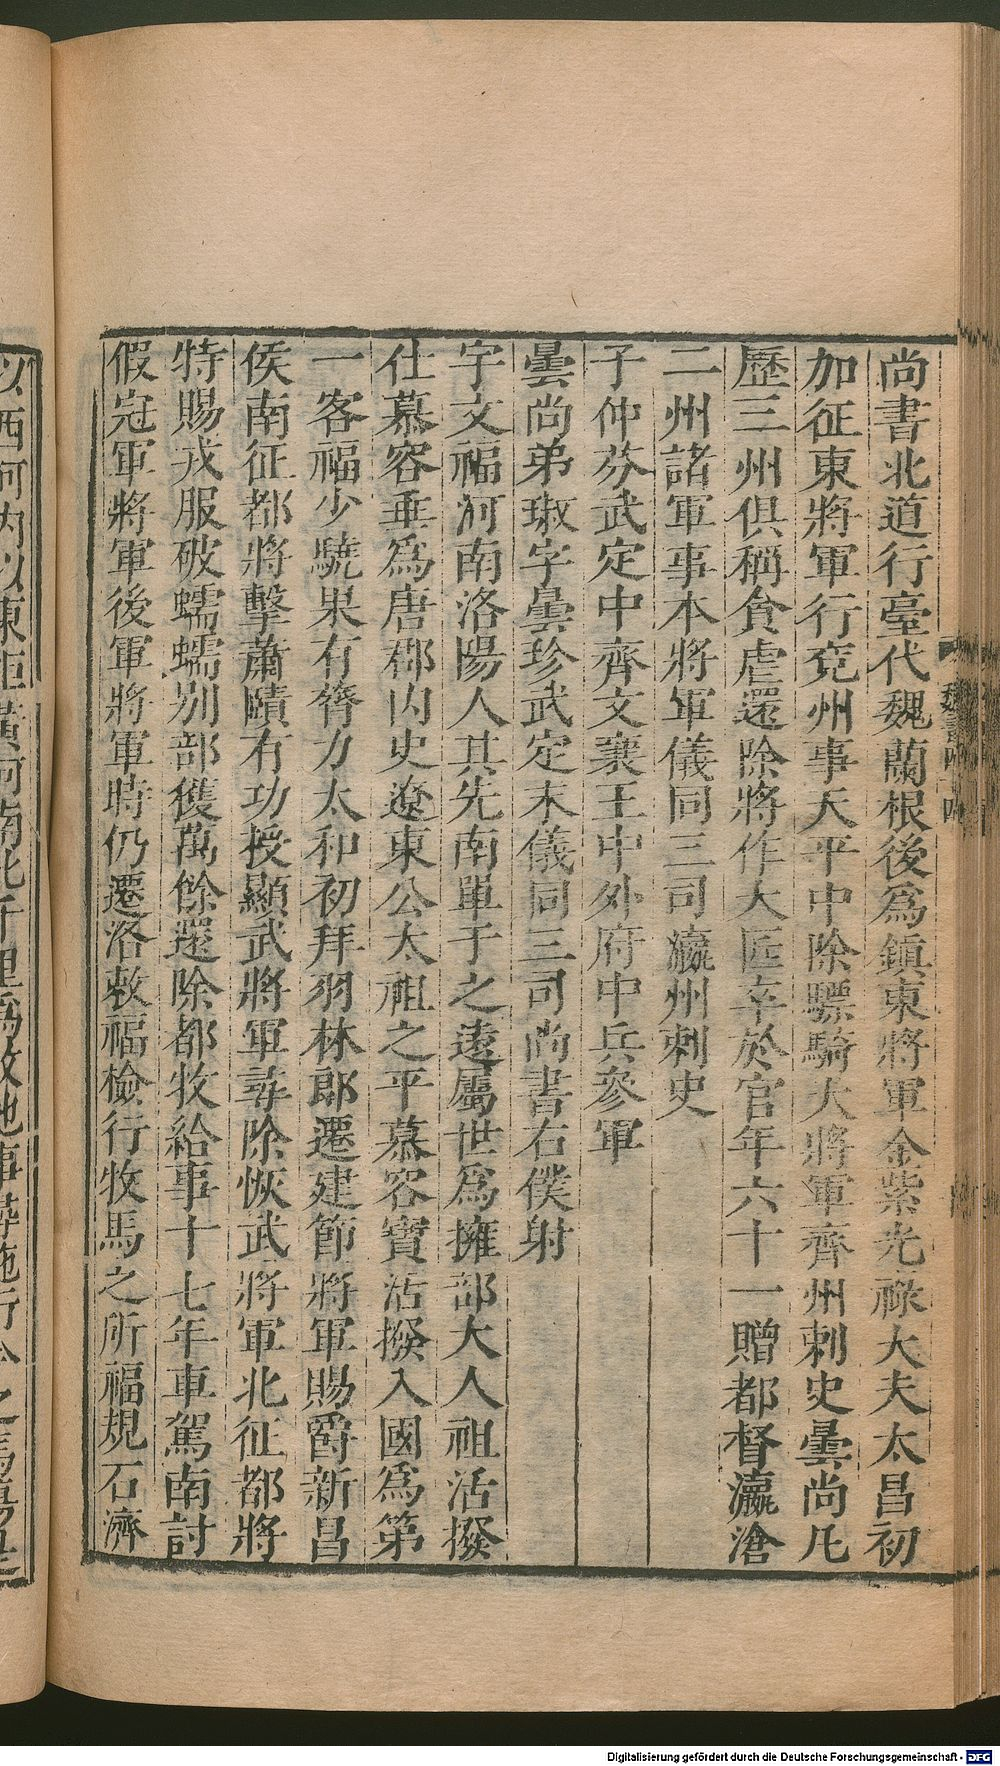 尚書北道行臺代魏蘭根後爲鎮東將軍金紫光祿大夫太昌初
加征東將軍行兗州事天平中除驃騎大將軍齊州刺史曇尚凡
歷三州俱稱貪虐還除將作大匠卒於官年六十一贈都督瀛滄
二州諸軍事本將軍儀同三司瀛州刺史
子仲芬武定中齊文襄王中外府中兵參軍
曇尚弟琡字曇珍武定末儀同三司尚書右僕射
宇文福河南洛陽人其先南單于之遠屬世爲擁部大人祖活撥
仕慕容垂爲唐郡內史遼東公太祖之平慕容寶活撥入國爲第
一客福少驍果有膂力太和初拜羽林郎遷建節將軍賜爵新昌
侯南征都將擊蕭賾有功授顯武將軍尋除恢武將軍北征都將
特賜戎服破蠕蠕別部獲萬餘還除都牧給事十七年車駕南討
假冠軍將軍後軍將軍時仍遷洛敕福檢行牧馬之所福規石濟
以西河內以東拒黃河南北千里爲牧地事尋施行今之馬場是
魏書四十四
Digitalisierung gefördert durch die Deutsche Forschungsgemeinschaft - DFG